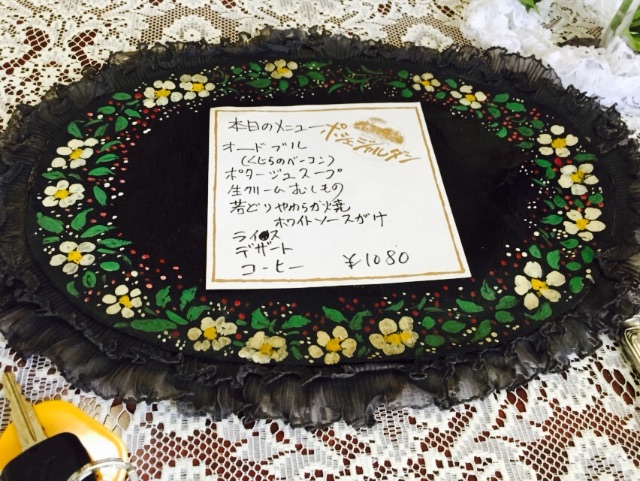 本日のメニュー
ポジャジャルダン
オードブル
(くじらのベーコン)
ポタージュスープ
生クリームむしもの
若どりやわらか焼
ホワイトソースがけ
ライス
デザート
コーヒー ¥1080